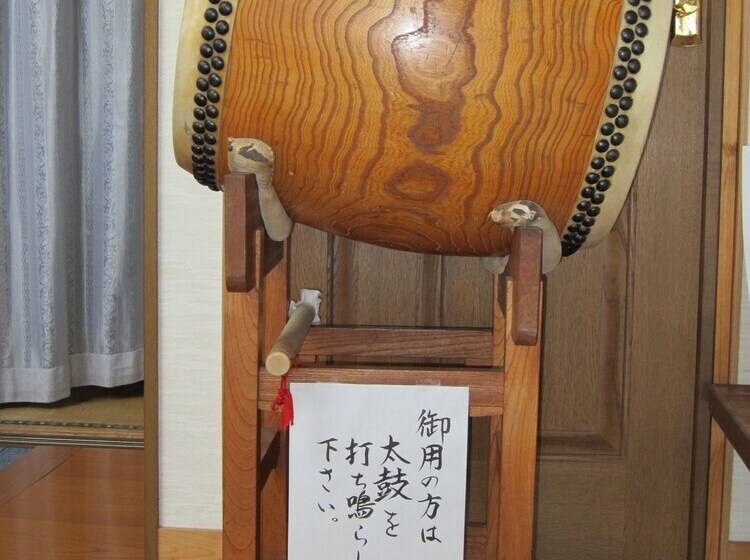 御用の方は
太鼓を
打ち鳴らし
下さい。